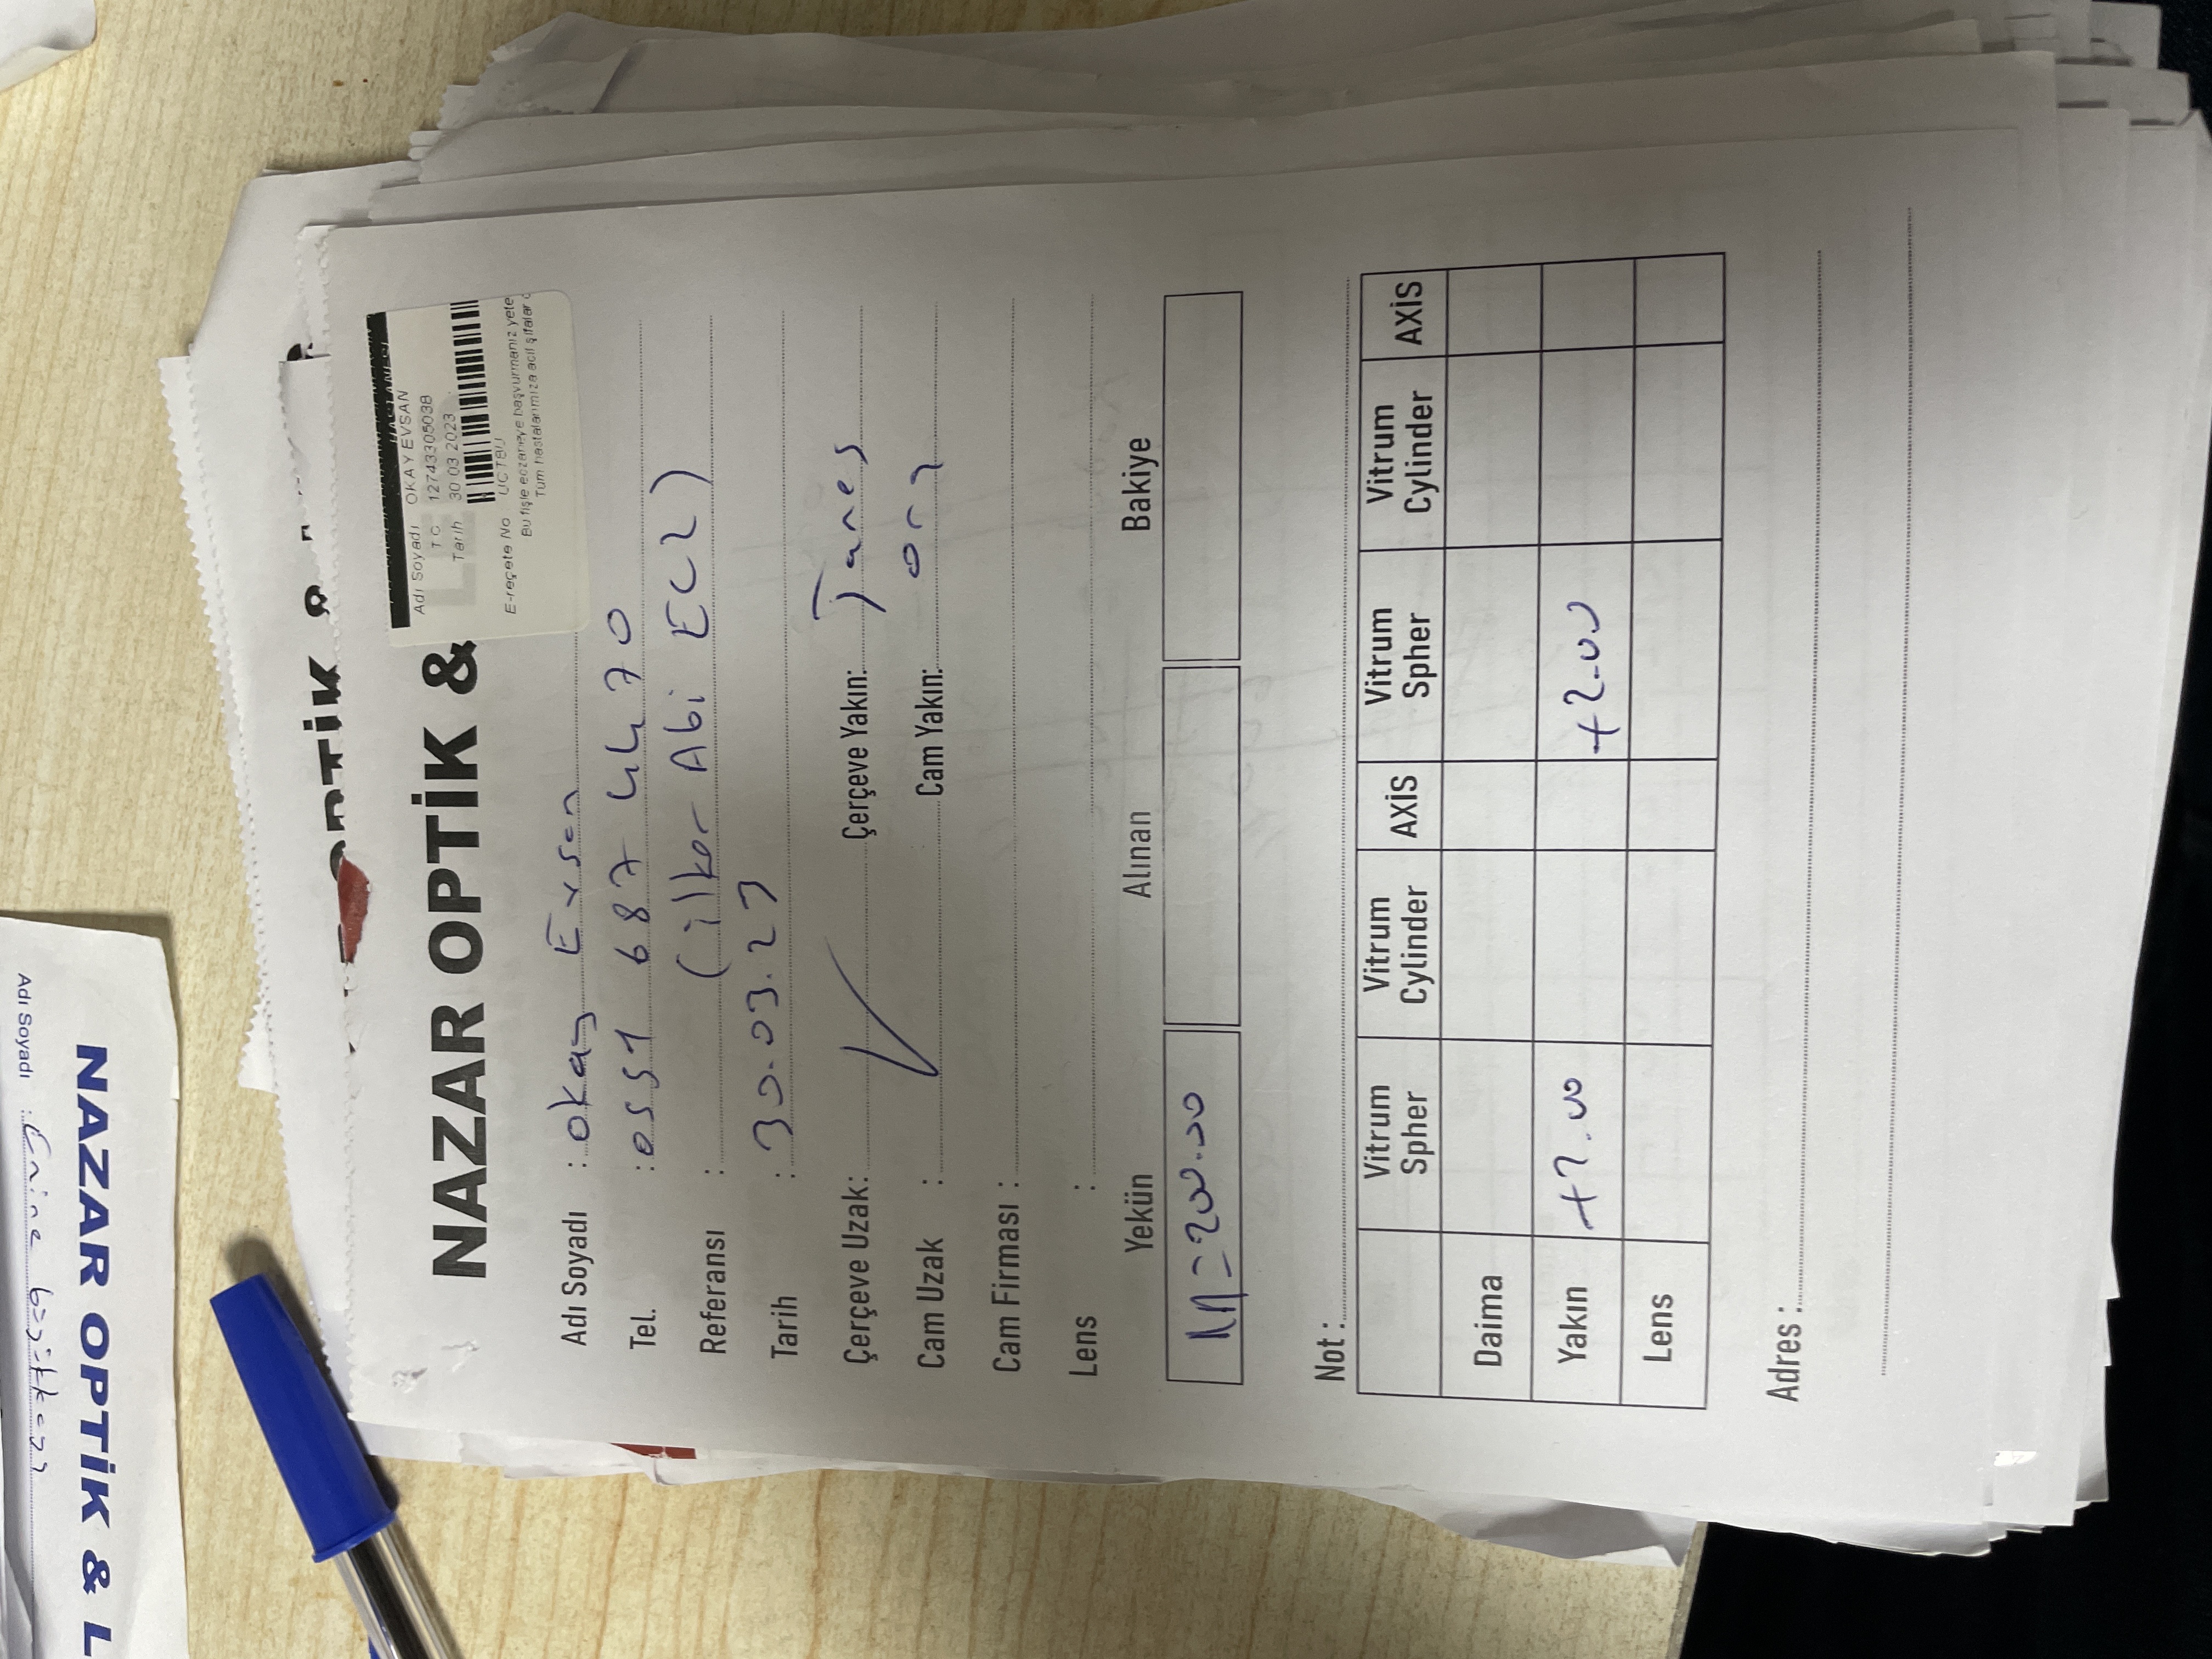 Adı Soyadı : Emine
NAZAR OPTİK & L
OPTİK &
NAZAR OPTİK & LE
HASTANESİ
Adı Soyadı OKAY EVSAN
TC 12743305038
Tarih 30 03 2023
E-reçete No UCT8U
Bu fişle eczaneye başvurmanız yete
Tüm hastalarımıza acil şifalar d
Adı Soyadı : Okay Evsan
Tel. : 0551 687 44 70
Referansı : (ilker Abi ECZ)
Tarih : 30.03.23
Çerçeve Uzak: Çerçeve Yakın:
Cam Uzak : Cam Yakın: org
Cam Firması :
Lens :
Yekün Alınan Bakiye
M=200.00
Not :
Vitrum Spher Vitrum Cylinder AXİS Vitrum Spher Vitrum Cylinder AXİS
Daima
Yakın +2.00 +2.00
Lens
Adres :